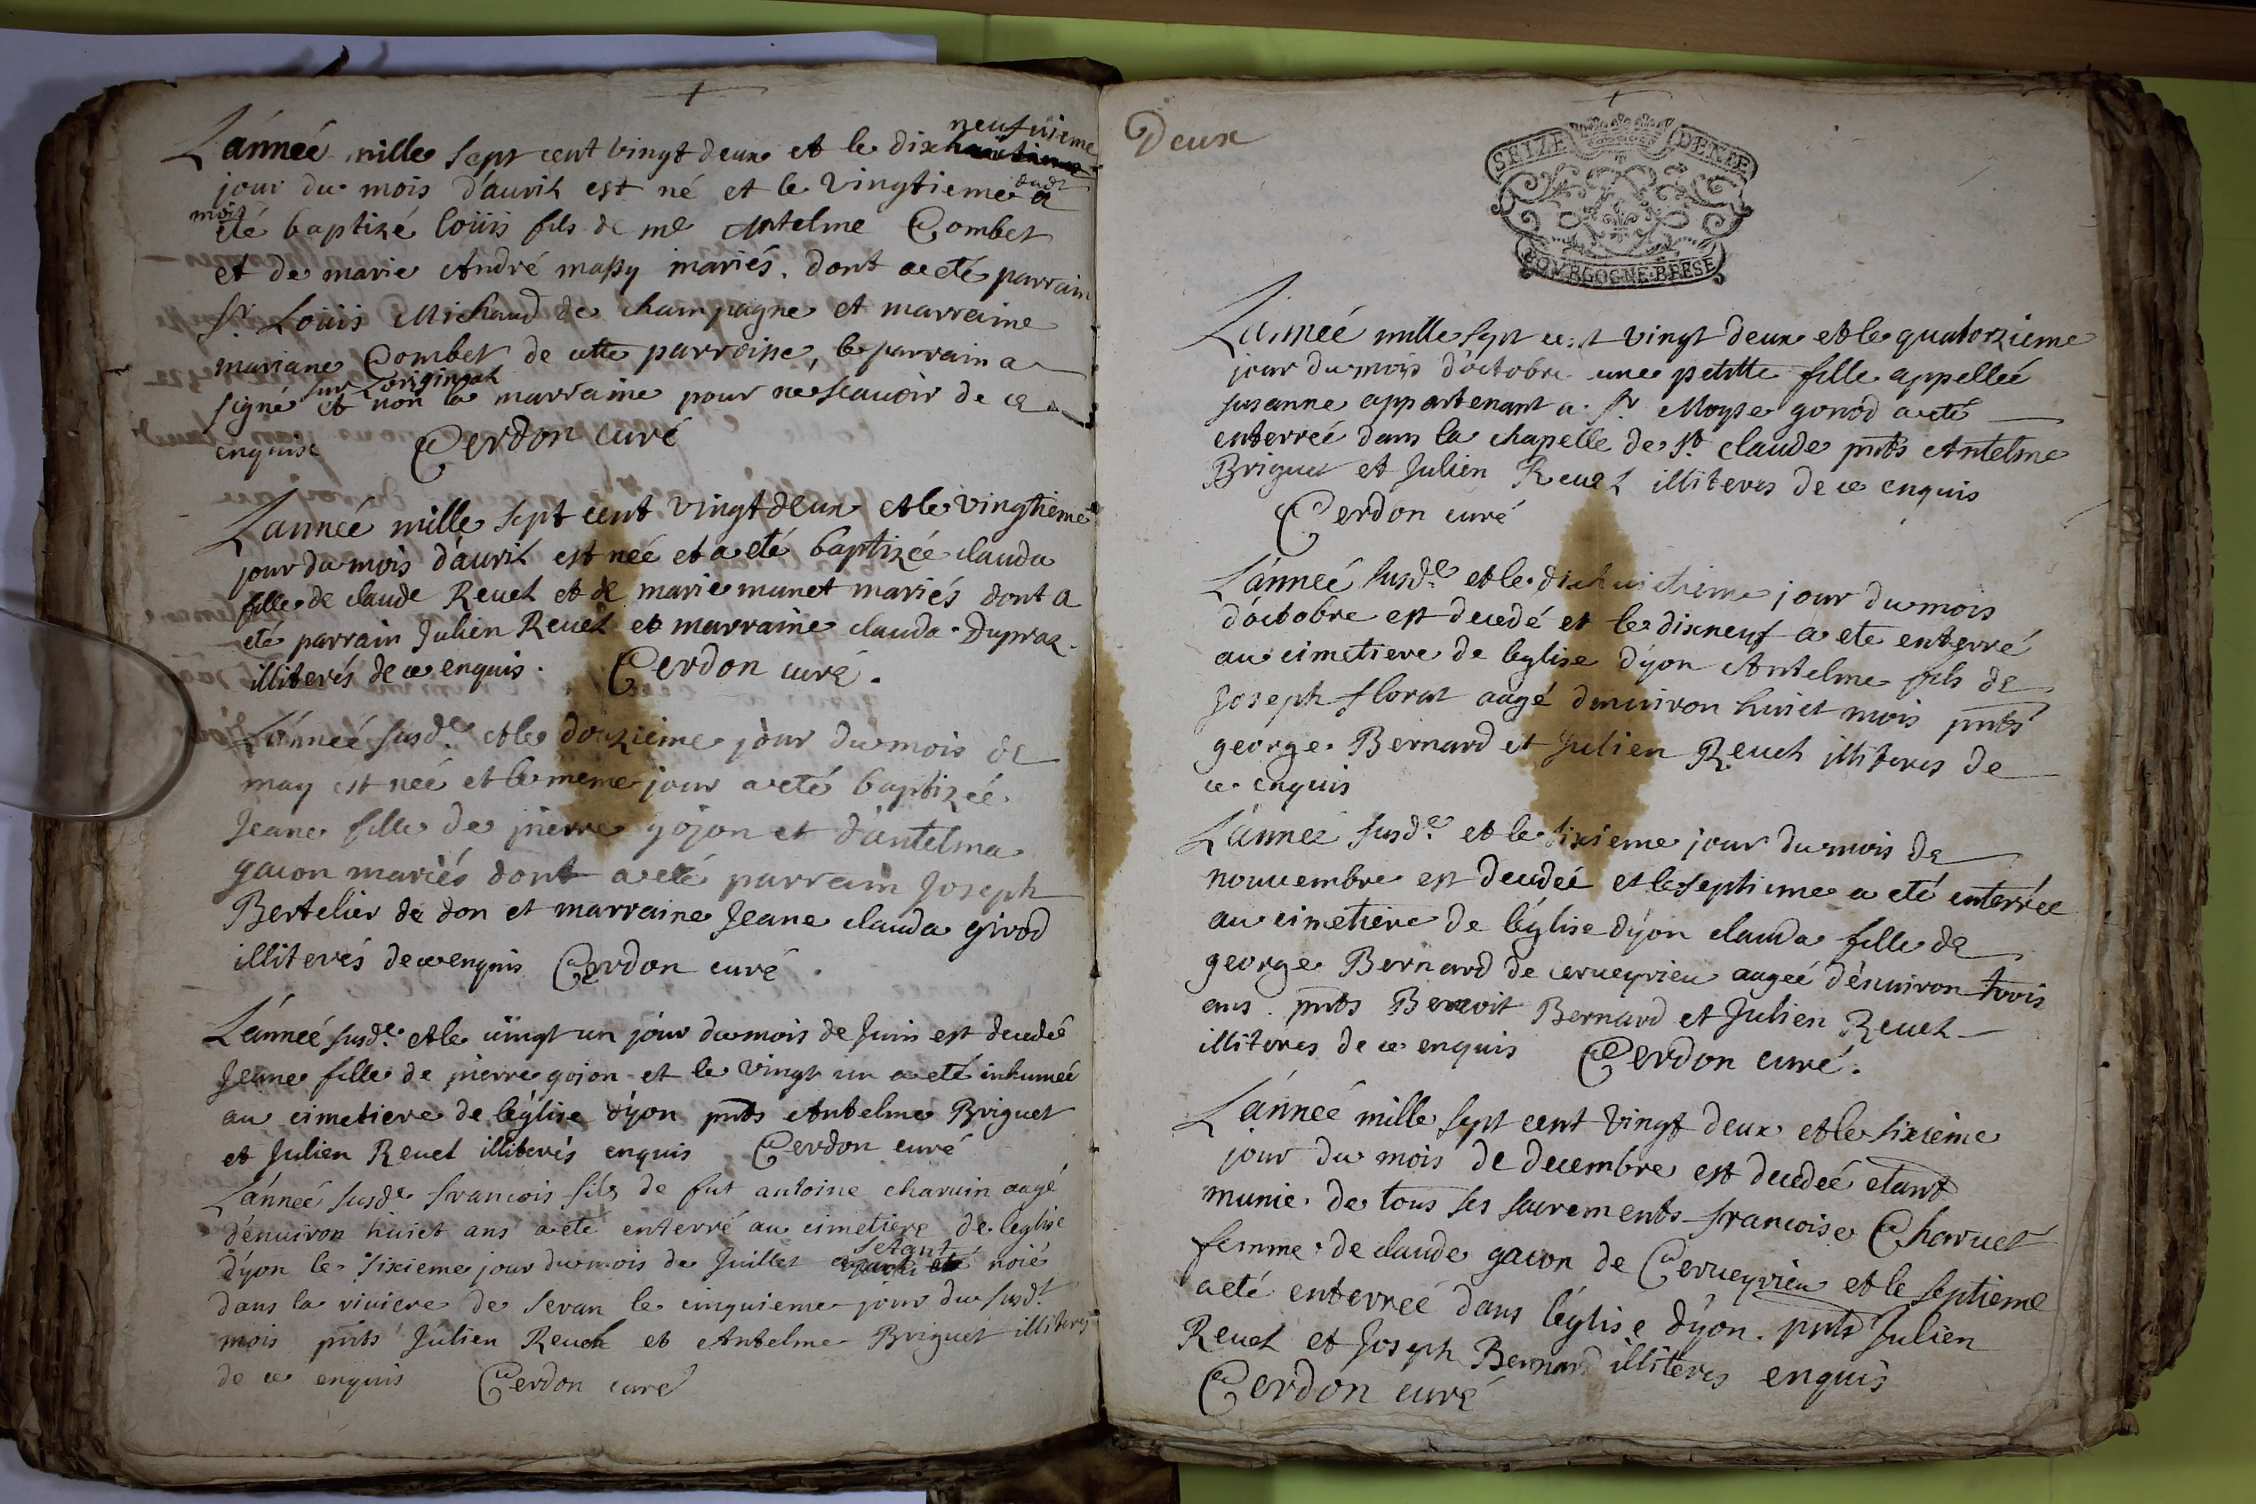 L'année mille sept cent vingt deux et le dix neufvieme
jour du mois d'auril est né et le vingtieme dudt
mois a été baptizé loüis fils de me Antelme Combet
et de marie André massy mariés. dont a eté parrain
Sr. Loüis Michaud de champagne et marreine
mariane Combet de cette parroisse, le parrain a
signé sur l'original et non la marraine pour ne scauoir de ce
enquise Cerdon curé
L'année mille sept cent vingt deux et le vingtieme
jour du mois d'auril est neé et a eté baptizeé clauda
fille de claude Reuel et de marie munet mariés dont a
eté parrain Julien Reuel et marraine clauda Dupraz.
illiterés de ce enquis. Cerdon curé.
L'année susde. et le douzieme jour du mois de
may est neé et le meme jour a eté baptizeé
Jeane fille de pierre gojon et d'antelma
gacon mariés dont a eté parrain Joseph
Bertelier de don et marraine Jeane clauda girod
illiterés de ce enquis Cerdon curé.
L'anneé susde. et le uingt un jour du mois de Juin est decedeé
Jeane fille de pierre gojon et le vingt un a eté inhumeé
au cimetiere de l'église d'yon pnts Antelme Briguet
et Julien Reuel illiterés enquis Cerdon curé
L'anneé susde francois fils de fut antoine charuin aagé
d'enuiron huict ans a eté enterré au cimetiere de leglise
d'yon le sixieme jour du mois de Juillet setant noié
dans la riuiere de seran le cinquieme jour du susdt
mois pnts Julien Reuel et Antelme Briguet illiterés
de ce enquis Cerdon curé
Deux
SEIZE DENIE
BOVRGOGNE·BRESE
L'anneé mille sept cent vingt deux et le quatorzieme
jour du mois d'octobre une petitte fille appelleé
susanne appartenant a Sr Moyse gonod a eté
enterreé dans la chapelle de st claude pnts Antelme
Briguet et Julien Reuel illiteres de ce enquis
Cerdon curé
L'anneé susde. et le dixhuictieme jour du mois
d'octobre est decedé et le dixneuf a ete enterré
au cimetiere de leglise d'yon Antelme fils de
Joseph florat aagé denuiron huict mois pnts
george Bernard et Julien Reuel illiteres de
ce enquis
L'anneé susde. et le sixieme jour du mois de
nouuembre est decedeé et le septieme a eté enterreé
au cimetiere de l'église d'yon clauda fille de
george Bernard de cerueyrieu aageé d'enuiron trois
ans. pnts Benoit Bernard et Julien Reuel
illiteres de ce enquis Cerdon curé.
L'anneé mille sept cent vingt deux et le sixieme
jour du mois de decembre est decedeé etant
munie de tous ses sacrements francoise Charuet
femme de claude gacon de Cerueyrieu et le septieme
a eté enterreé dans l'église d'yon. pnts Julien
Reuel et Joseph Bernard illiteres enquis
Cerdon curé